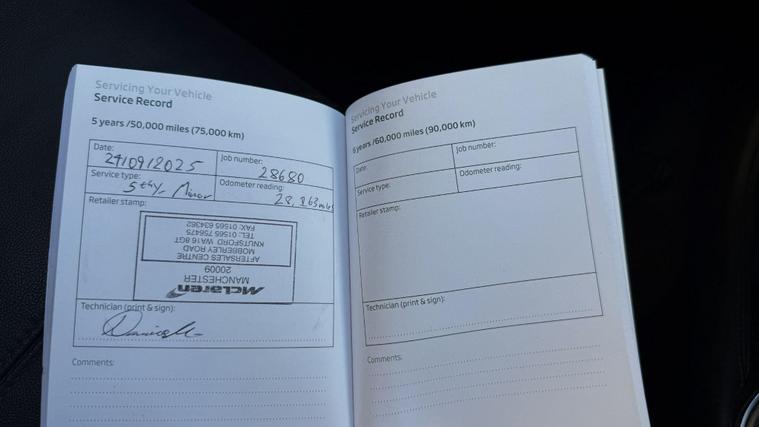 Servicing Your Vehicle
Service Record
5 years /50,000 miles (75,000 km)
Date:
24/09/2025
Job number:
28680
Service type:
5thy, Minor
Odometer reading:
28,863 miles
Retailer stamp:
McLaren
MANCHESTER
20009
AFTERSALES CENTRE
MOBBERLEY ROAD
KNUTSFORD WA16 8GT
TEL: 01565 756475
FAX: 01565 634362
Technician (print & sign):
Comments:
Servicing Your Vehicle
Service Record
6 years /60,000 miles (90,000 km)
Date:
Job number:
Service type:
Odometer reading:
Retailer stamp:
Technician (print & sign):
Comments: